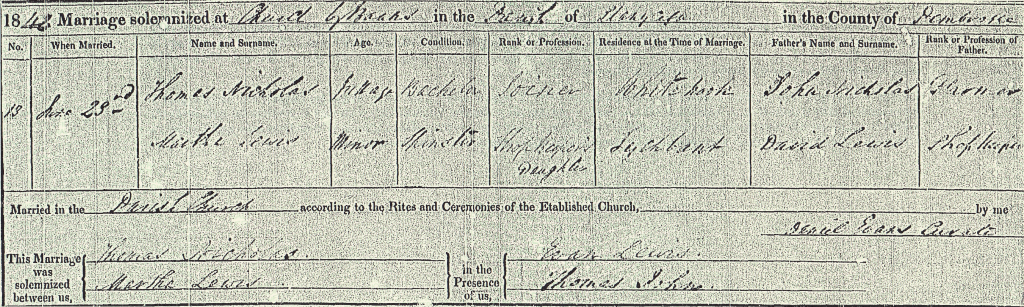 1842. Marriage solemnized at Church by Banns in the Parish of in the County of Pembroke
No. When Married. Name and Surname. Age. Condition. Rank or Profession. Residence at the Time of Marriage. Father's Name and Surname. Rank or Profession of Father.
13 June 23rd Thomas Nicholas full age Bachelor Joiner Whitehook John Nicholas Farmer
Martha Lewis Minor Spinster Shopkeeper's Daughter David Lewis Shopkeeper
Married in the Parish Church according to the Rites and Ceremonies of the Etablished Church, by me
Daniel Evans Curate
This Marriage was solemnized between us, Thomas Nicholas Martha Lewis in the Presence of us, Evan Lewis. Thomas John